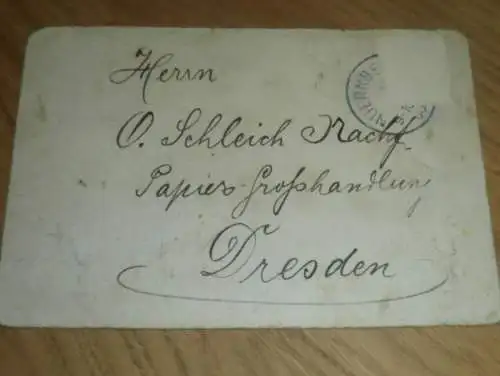 Herrn
NUERNB
O. Schleich Nachf.
Papier-Großhandlung
Dresden